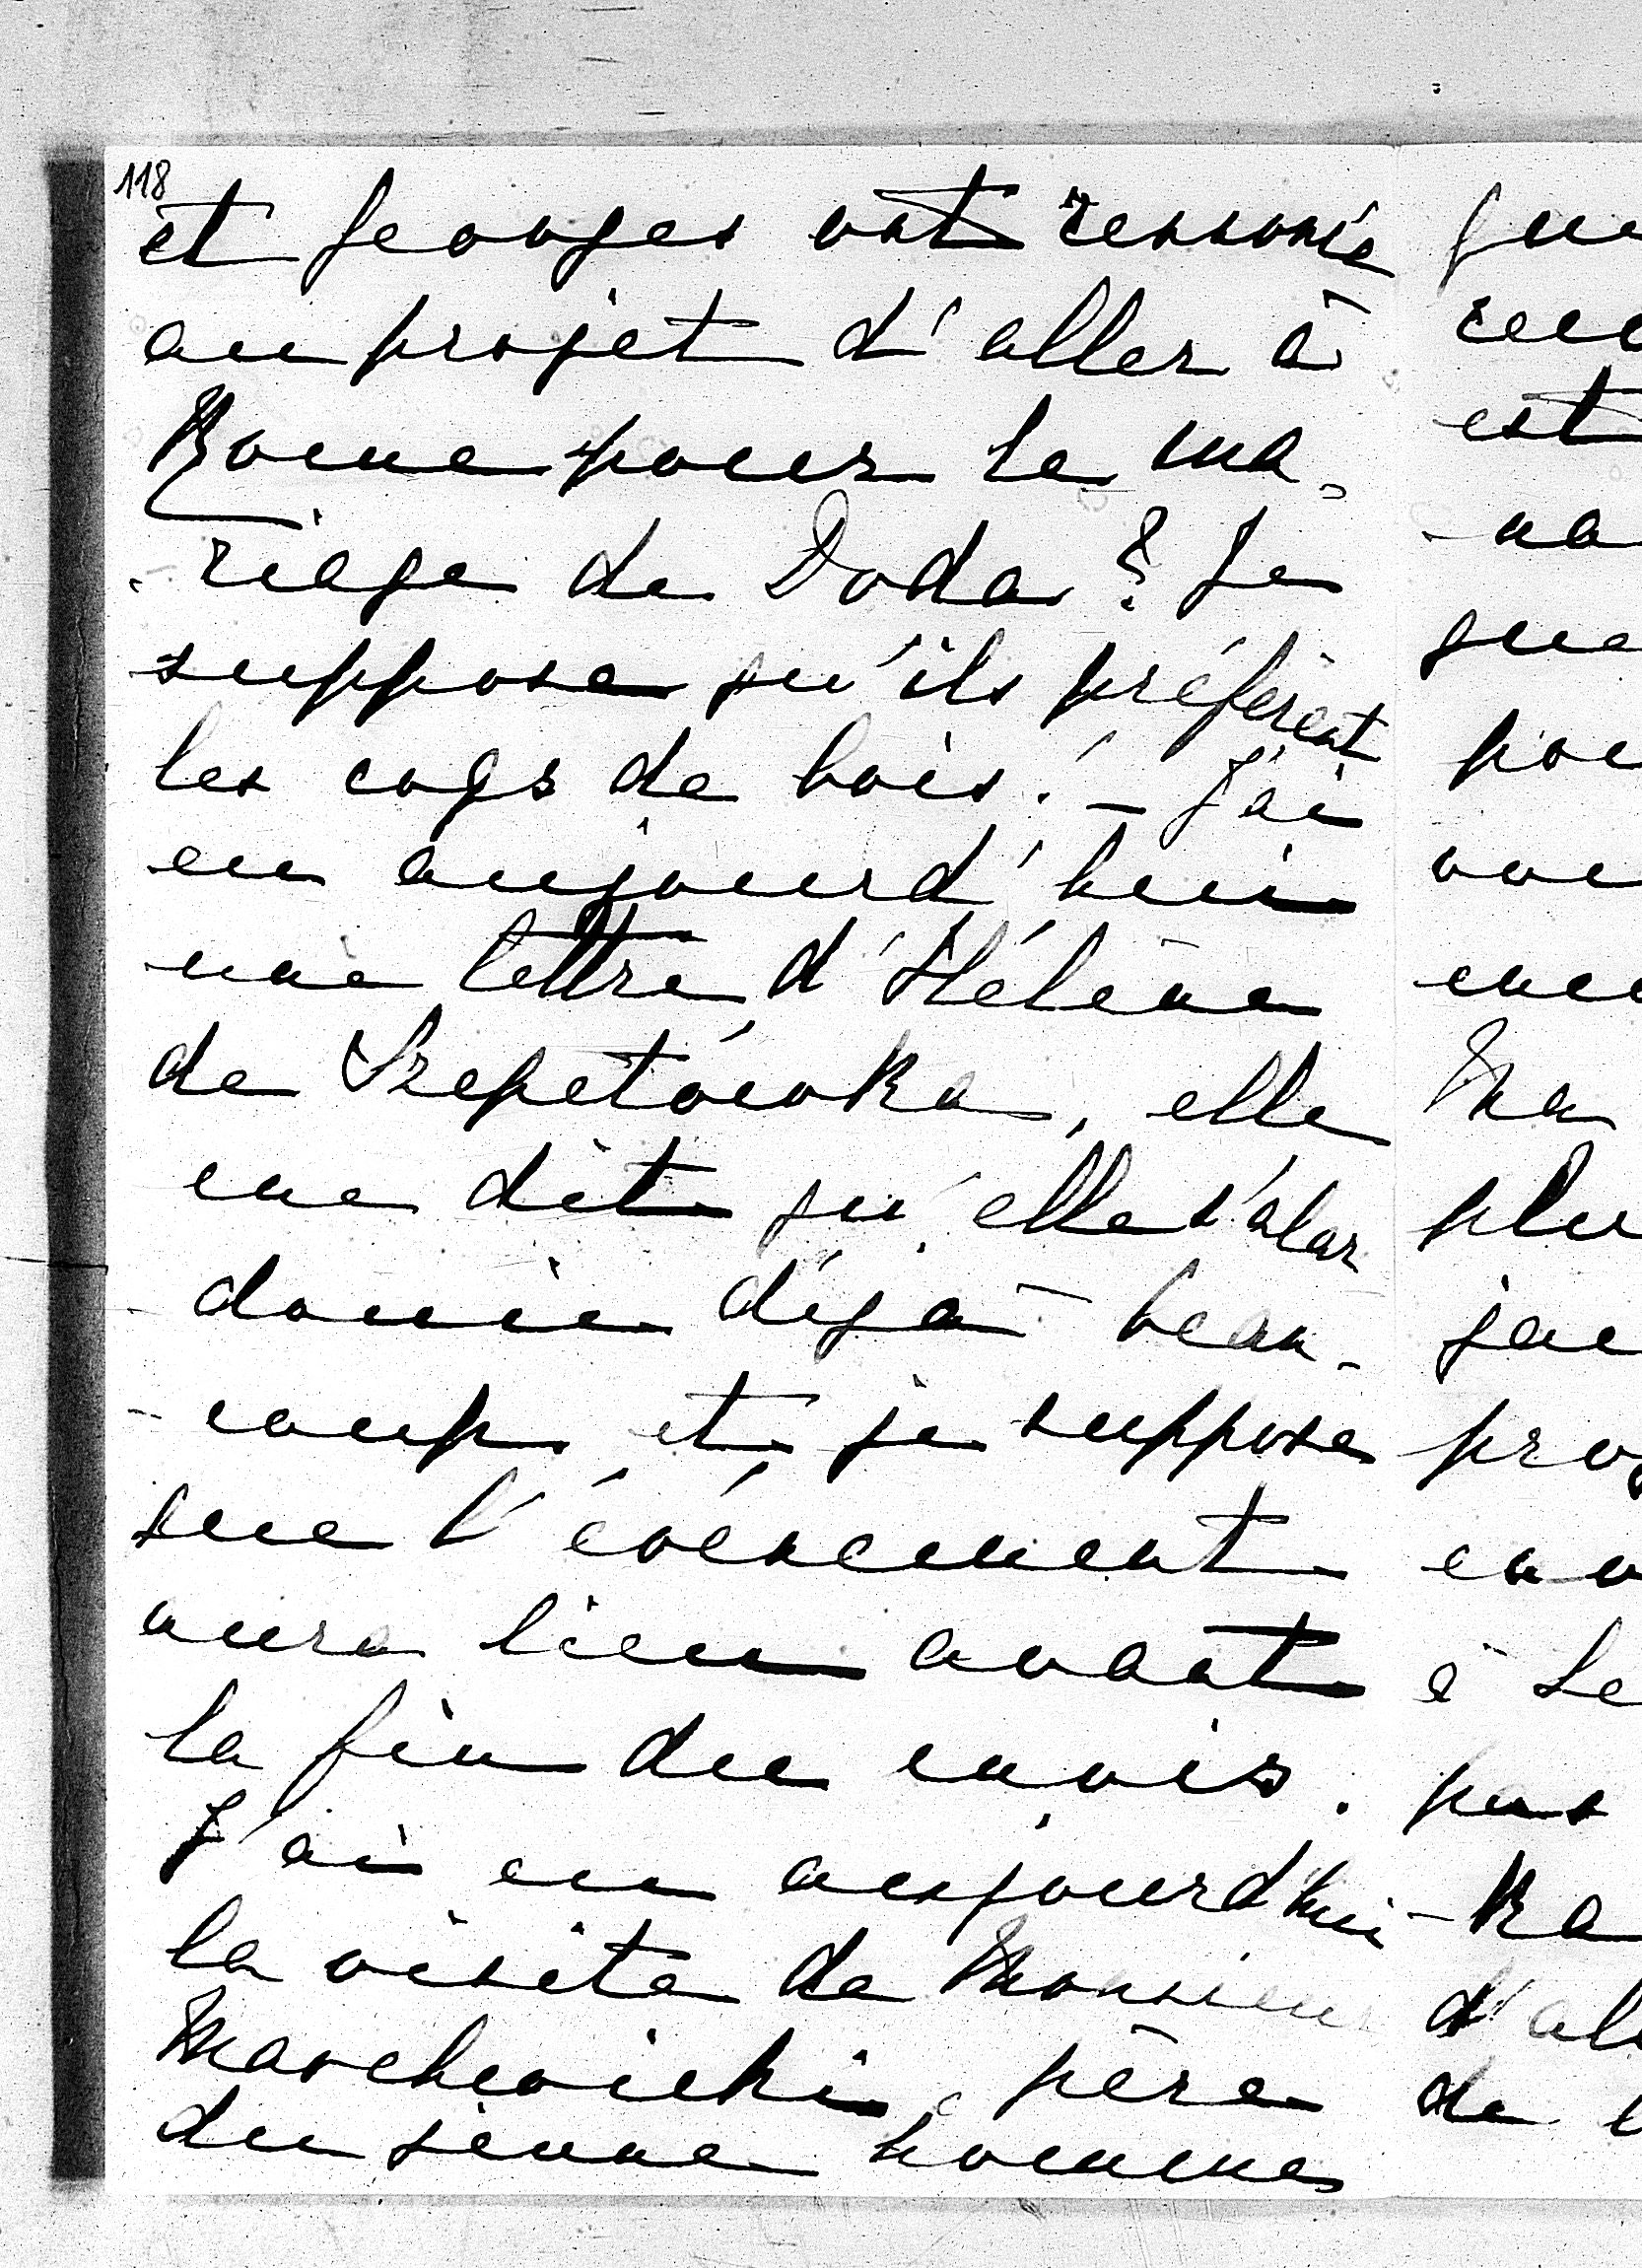 118
et Georges ont renoncé
au projet d'aller à
Rome pour le ma-
-riage de Doda? Je
suppose qu'ils préfèrent
les coqs de bois! – J'ai
eu aujourd'hui
une lettre d'Hélène
de Szepetówka, elle
me dit qu'elle s'alar
-dovie déjà beau-
-coup et je suppose
que l'événement
aura lieu avant
la fin du mois.
J'ai eu aujourdhui
la visite de Monsieur
Marchwicki père
du jeune homme
que
est
-na
que
Ma
plu
à Le
pas
-ka
d'ab
de